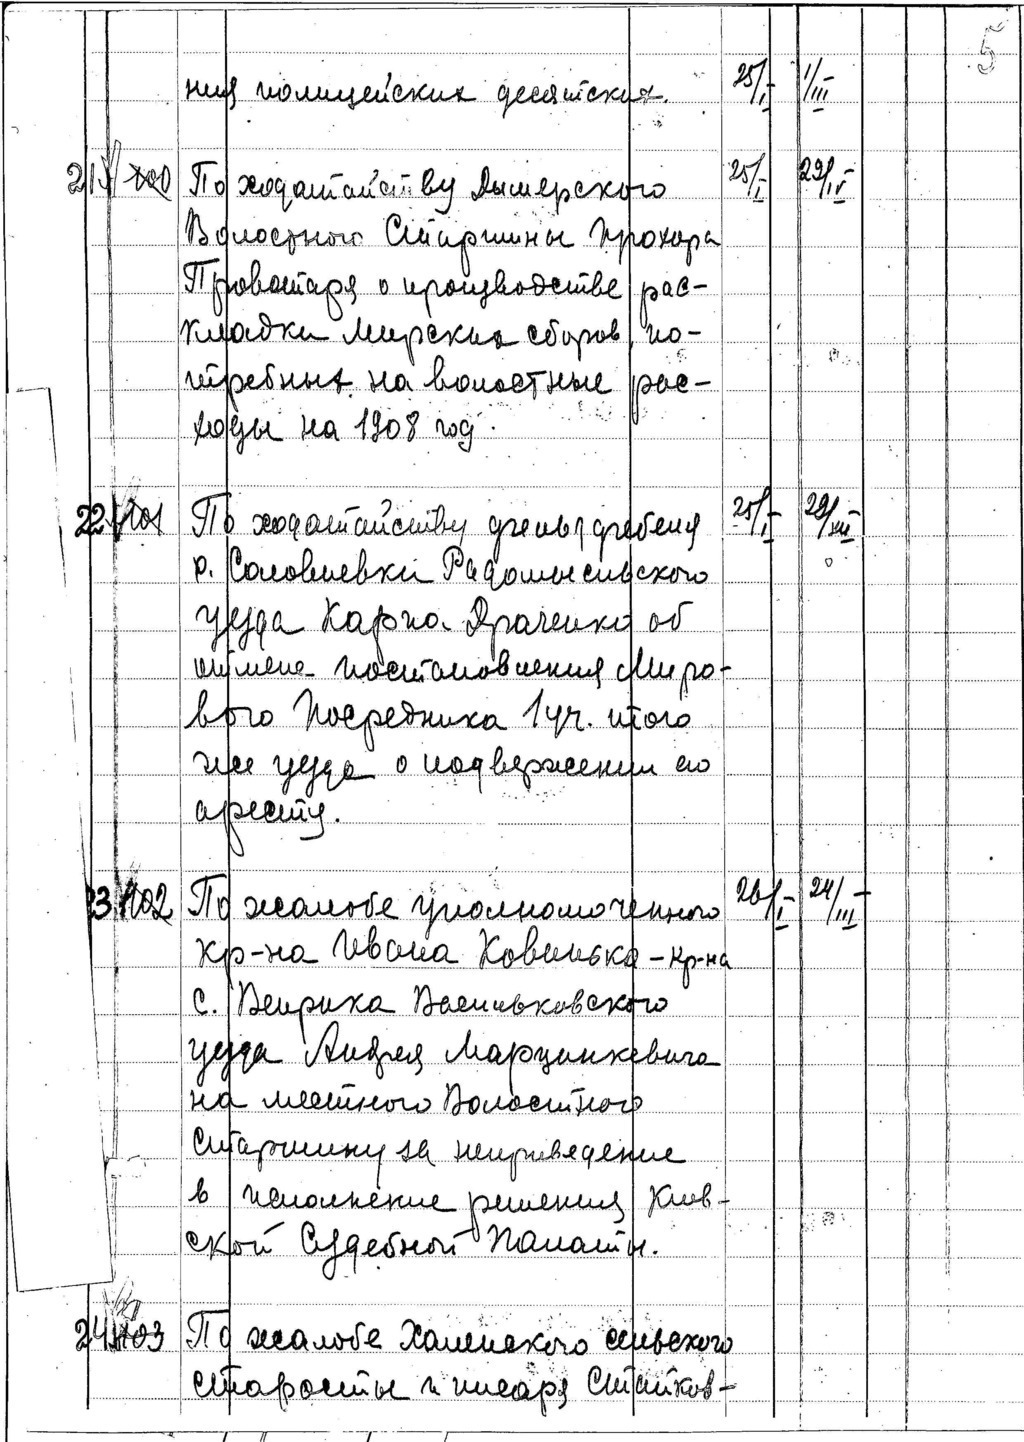 5
ния полицейских десятских. 25/I 1/III
21 100 По ходатайству Дымерского 25/I 29/IV
Волостного Старшины Прохора
Провотаря о производстве рас-
кладки мирских сборов, по-
требных на волостные рас-
ходы на 1908 год.
22 101 По ходатайству 25/I 29/XII
с. Соловиевки Радомысльского
уезда Карпа Драченко об
отмене постановления Миро-
вого Посредника 1 уч. этого
же уезда о подвержении его
аресту.
23 102 По жалобе уполномоченного 26/I 24/III
кр-на Ивана Ковинька - кр-на
с. Веприка Васильковского
уезда Андрея Марцинкевича
на местного Волостного
Старшину за неприведение
в исполнение решения Киев-
ской Судебной Палаты.
24 103 По жалобе сельского
старосты и писаря Ститков-